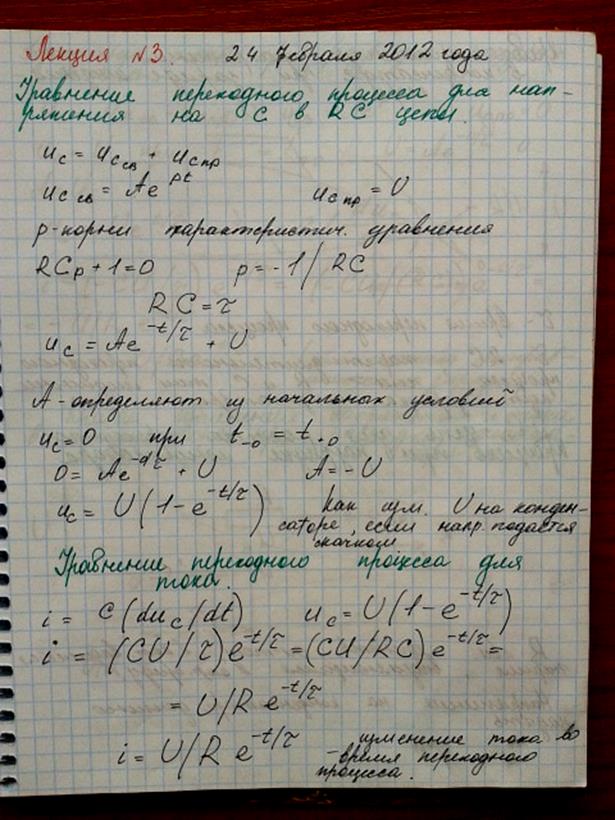 Лекция №3. 24 Февраля 2012 года
Уравнение переходного процесса для нап-
ряжения на C в RC цепи.
u_C = u_Cсв + u_Cпр
u_Cсв = Ae^pt u_Cпр = U
p-корни характеристич. уравнения
RCp + 1 = 0 p = -1/RC
RC = τ
u_C = Ae^-t/τ + U
A - определяют из начальных условий
u_C = 0 при t_-0 = t_+0
0 = Ae^-0/τ + U A = -U
u_C = U(1 - e^-t/τ) как изм. U на конден-
саторе, если напр. подается
скачком
Уравнение переходного процесса для
тока.
i = C(du_C/dt) u_C = U(1 - e^-t/τ)
i = (CU/τ)e^-t/τ = (CU/RC)e^-t/τ =
= U/R e^-t/τ
i = U/R e^-t/τ изменение тока во
время переходного
процесса.